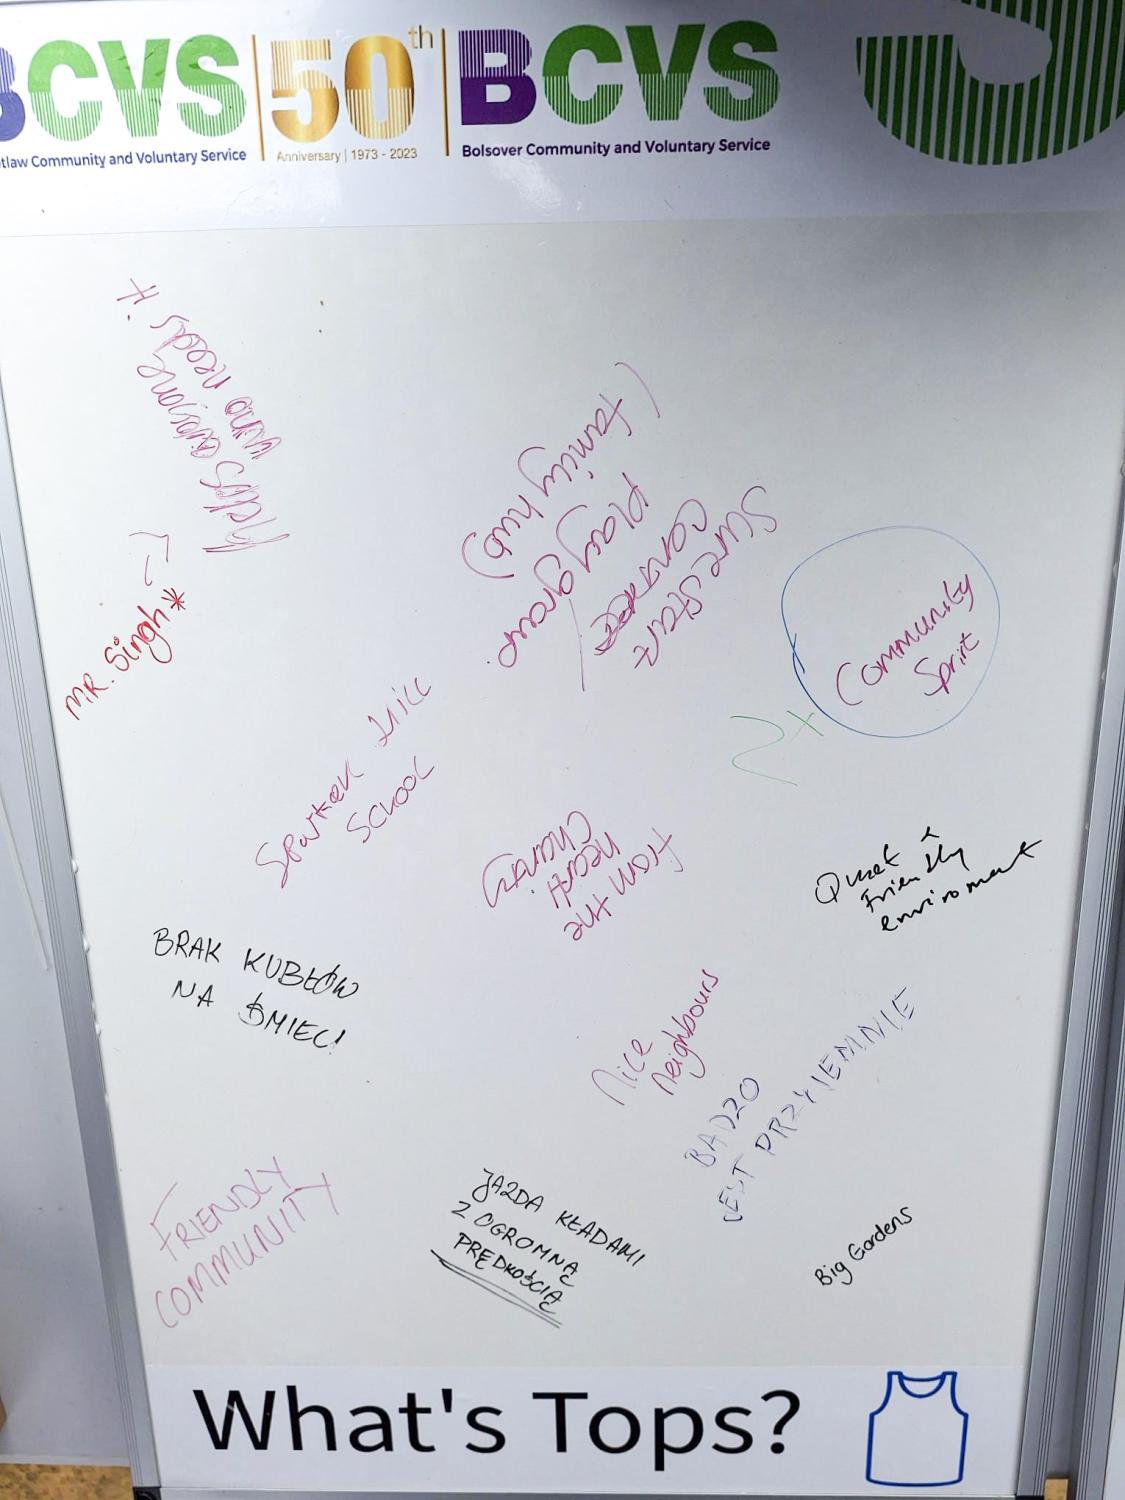 BCVS
50th
BCVS
tlaw Community and Voluntary Service
Anniversary | 1973 - 2023
Bolsover Community and Voluntary Service
MR. Singh*
helps everyone
who needs it
(family hub)
playground
Connected
Surestart
Community
Sprit
2x
Spurken Hill
School
Charity
from the
Quiet &
Friendly
enviroment
BRAK KUBŁÓW
NA ŚMIECI!
Nice
neighbours
BADZO
JEST PRZYJEMNIE
FRIENDLY
COMMUNITY
JAZDA KŁADAMI
Z OGROMNĄ
PRĘDKOŚCIĄ
Big Gardens
What's Tops?